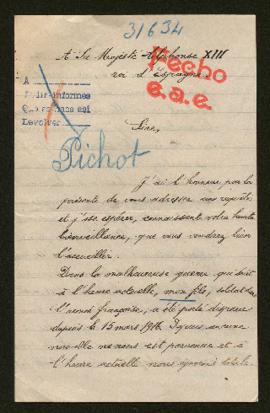 31634
A Sa Majesté Alphonse XIII
roi d'Espagne
Hecho
e.a.e.
A
Pedir informes
Devolver
Sire,
Pichot
J'ai l'honneur par la
présente de vous adresser une requête
et j'ose espérer, connaissant votre haute
bienveillance, que vous voudrez bien
l'accueillir.
Dans la malheureuse guerre qui sévit
à l'heure actuelle, mon fils, soldat dans
l'armée française, a été porté disparu
depuis le 15 mars 1916. Depuis aucune
nouvelle ne nous est parvenue et à
l'heure actuelle nous ignorons